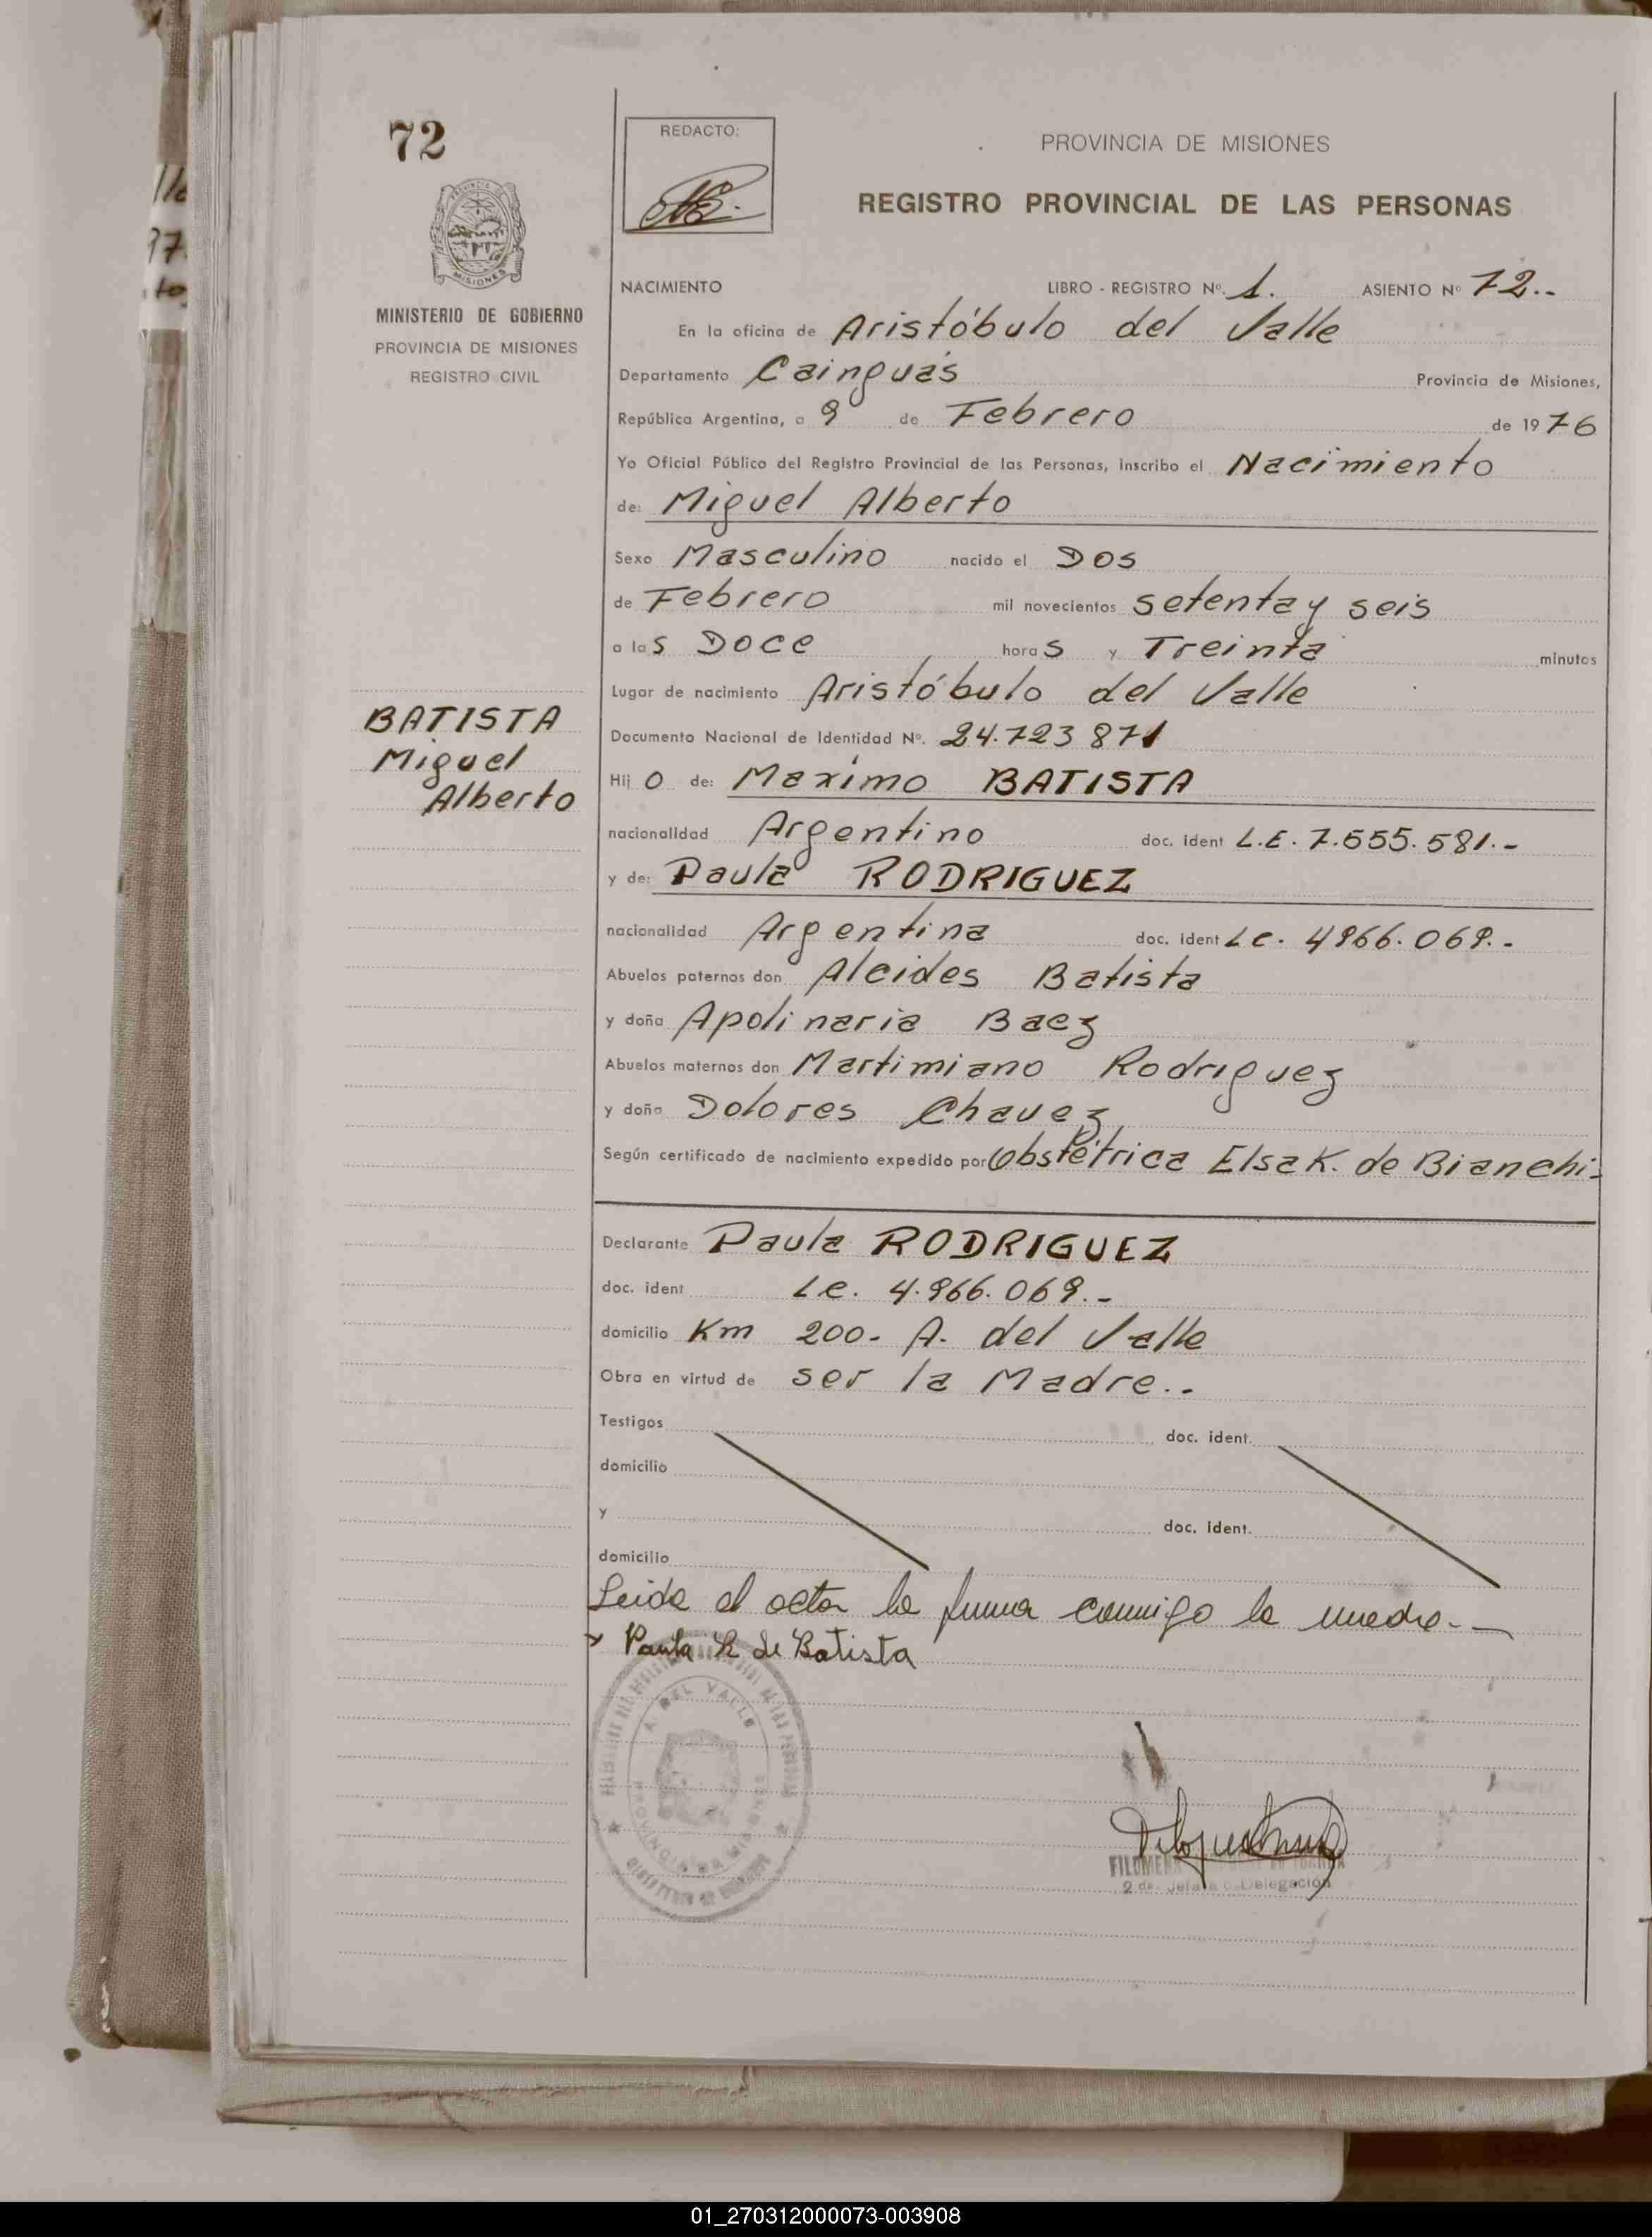 72
REDACTO:
PROVINCIA DE MISIONES
REGISTRO PROVINCIAL DE LAS PERSONAS
MISIONES
MINISTERIO DE GOBIERNO
PROVINCIA DE MISIONES
REGISTRO CIVIL
NACIMIENTO LIBRO - REGISTRO Nº. 1. ASIENTO Nº 72..
En la oficina de Aristóbulo del Valle
Departamento Cainguás Provincia de Misiones,
República Argentina, a 9 de Febrero de 1976
Yo Oficial Público del Registro Provincial de las Personas, inscribo el Nacimiento
de: Miguel Alberto
Sexo Masculino nacido el Dos
de Febrero mil novecientos setenta y seis
a las Doce horas y Treinta minutos
Lugar de nacimiento Aristóbulo del Valle
Documento Nacional de Identidad Nº. 24.723 871
BATISTA
Miguel
Alberto
Hijo de: Maximo BATISTA
nacionalidad Argentino doc. ident L.E. 7.555.581.-
y de: Paula RODRIGUEZ
nacionalidad Argentina doc. ident Lc. 4966.069.-
Abuelos paternos don Alcides Batista
y doña Apolinaria Baez
Abuelos maternos don Martimiano Rodriguez
y doña Dolores Chavez
Según certificado de nacimiento expedido por Obstétrica Elsa K. de Bianchi.-
Declarante Paula RODRIGUEZ
doc. ident Lc. 4.966.069.-
domicilio Km 200- A. del Valle
Obra en virtud de ser la Madre..
Testigos doc. ident.
domicilio
y doc. ident.
domicilio
Leida el acta la firma conmigo la madre.-
x Paula R de Batista
A. DEL VALLE
FILOMENA
2da. Jefa de Delegación
01_270312000073-003908